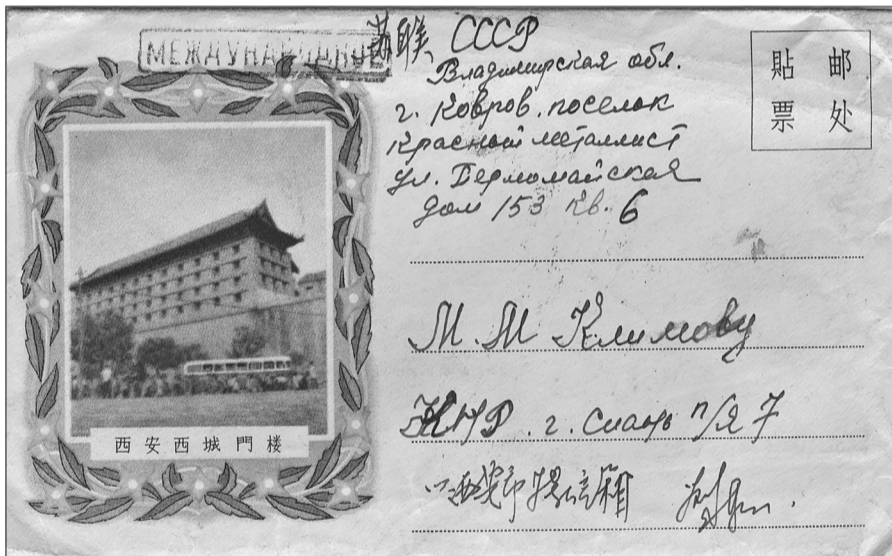 МЕЖДУНАРОДНОЕ
苏联 СССР
Владимирская обл.
г. Ковров. поселок
Красный металлист
ул. Первомайская
дом 153 кв. 6
邮票
处貼
М. М Климову
КНР. г. Сиань п/я 7
西安市
信箱
西安西城門楼